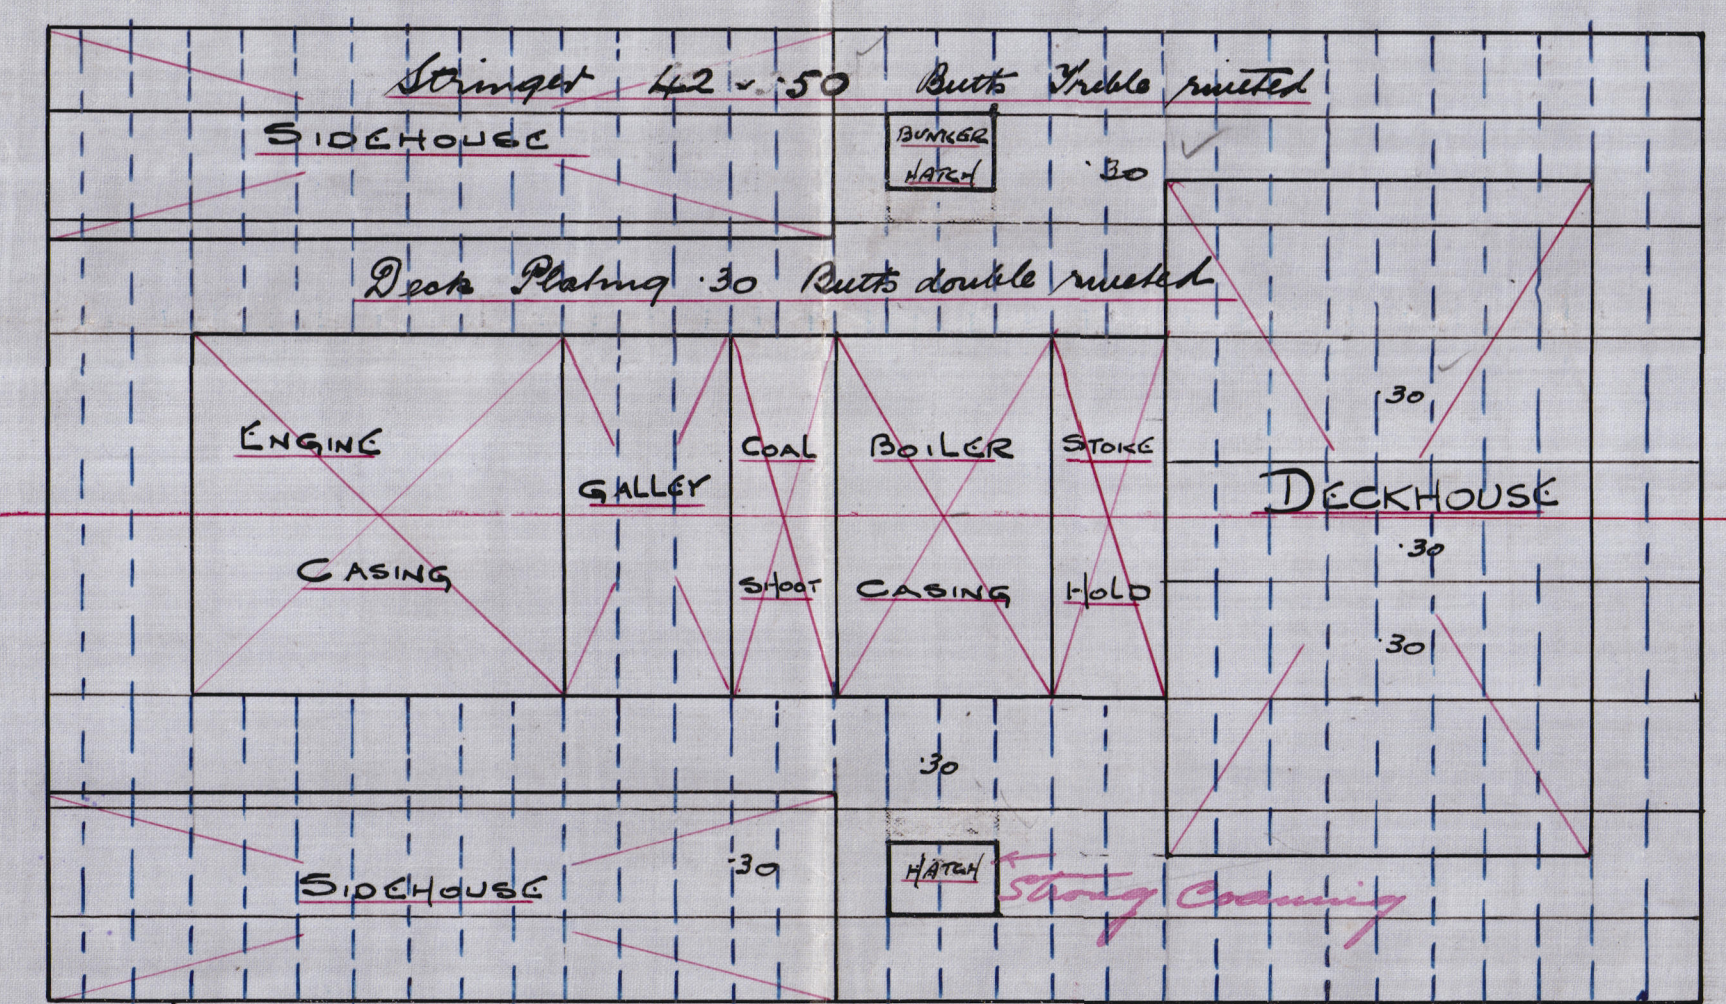 Stringer 42 × .50 Butts Treble riveted
SIDEHOUSE
BUNKER
HATCH
.30
Deck Plating .30 Butts double riveted
.30
ENGINE
CASING
GALLEY
COAL
SHOOT
BOILER
CASING
STOKE
HOLD
DECKHOUSE
.30
.30
.30
SIDEHOUSE
.30
HATCH
Strong Coaming